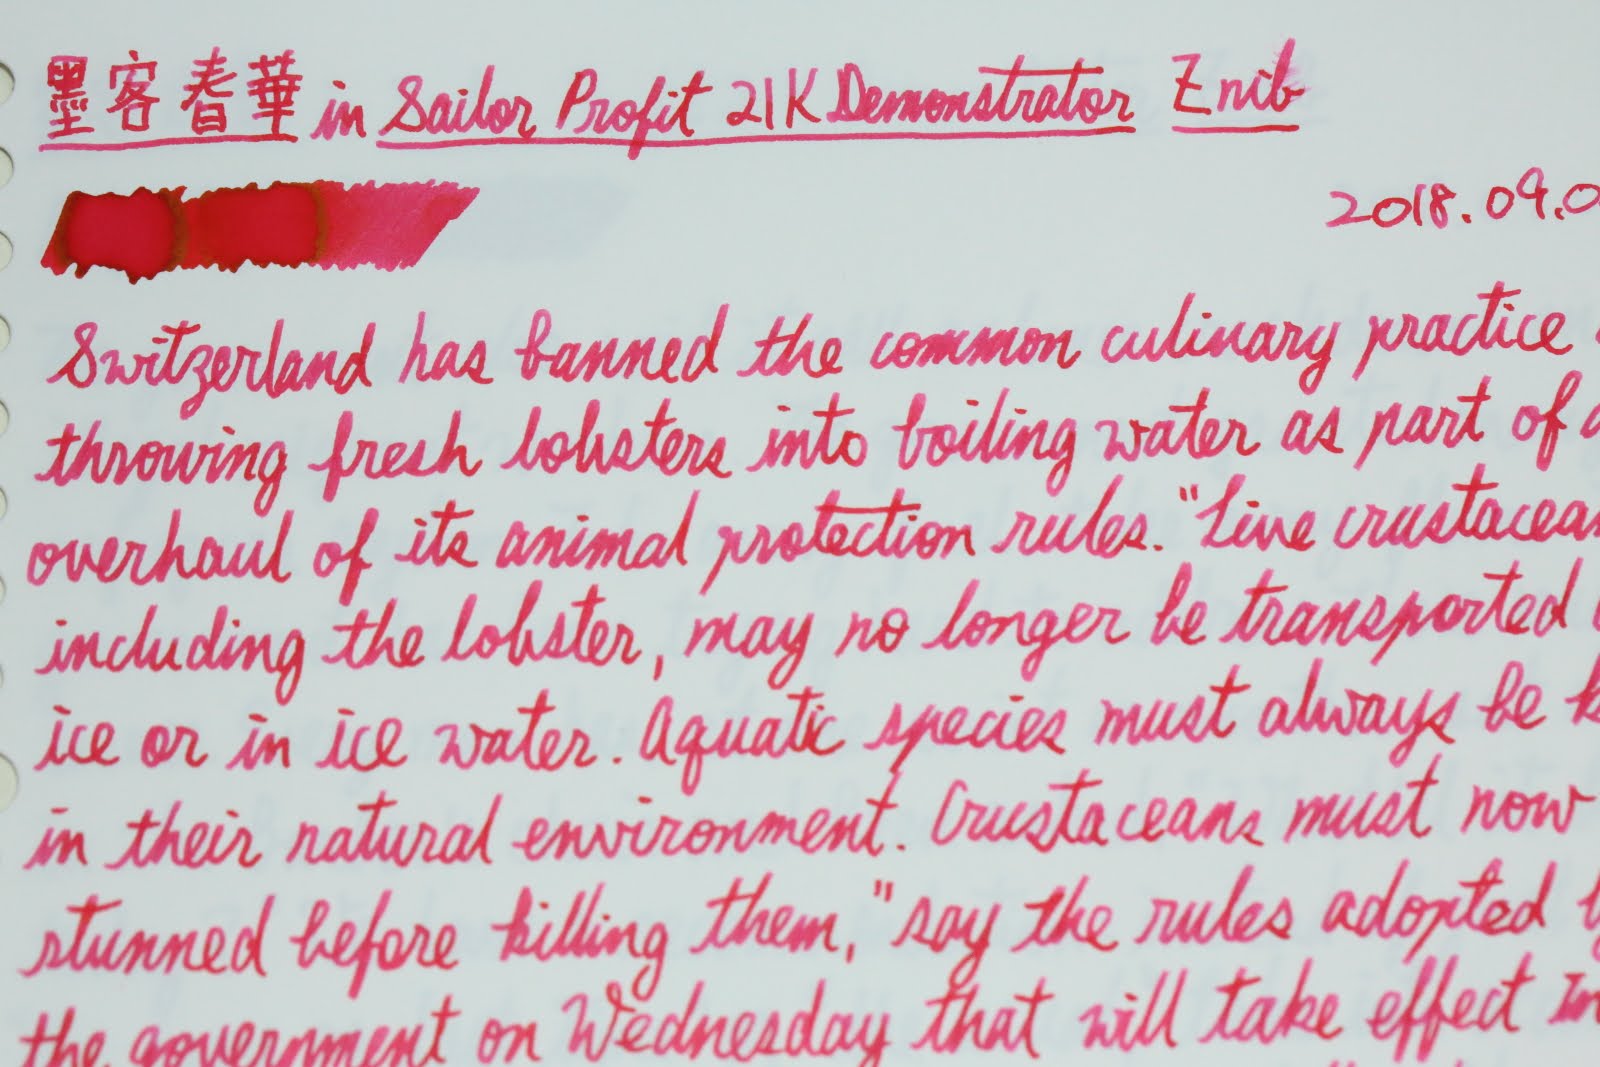 墨客春華 in Sailor Profit 21K Demonstrator Z nib
2018.09.0
Switzerland has banned the common culinary practice
throwing fresh lobsters into boiling water as part of a
overhaul of its animal protection rules. "Live crustacean
including the lobster, may no longer be transported
ice or in ice water. Aquatic species must always be k
in their natural environment. Crustaceans must now
stunned before killing them," say the rules adopted b
the government on Wednesday that will take effect in